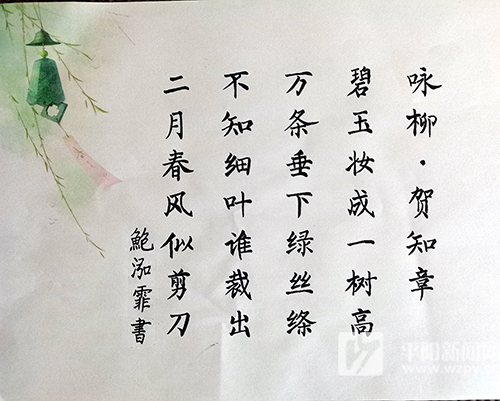 咏柳·贺知章
碧玉妆成一树高
万条垂下绿丝绦
不知细叶谁裁出
二月春风似剪刀
鮑泓霏書
平阳新闻